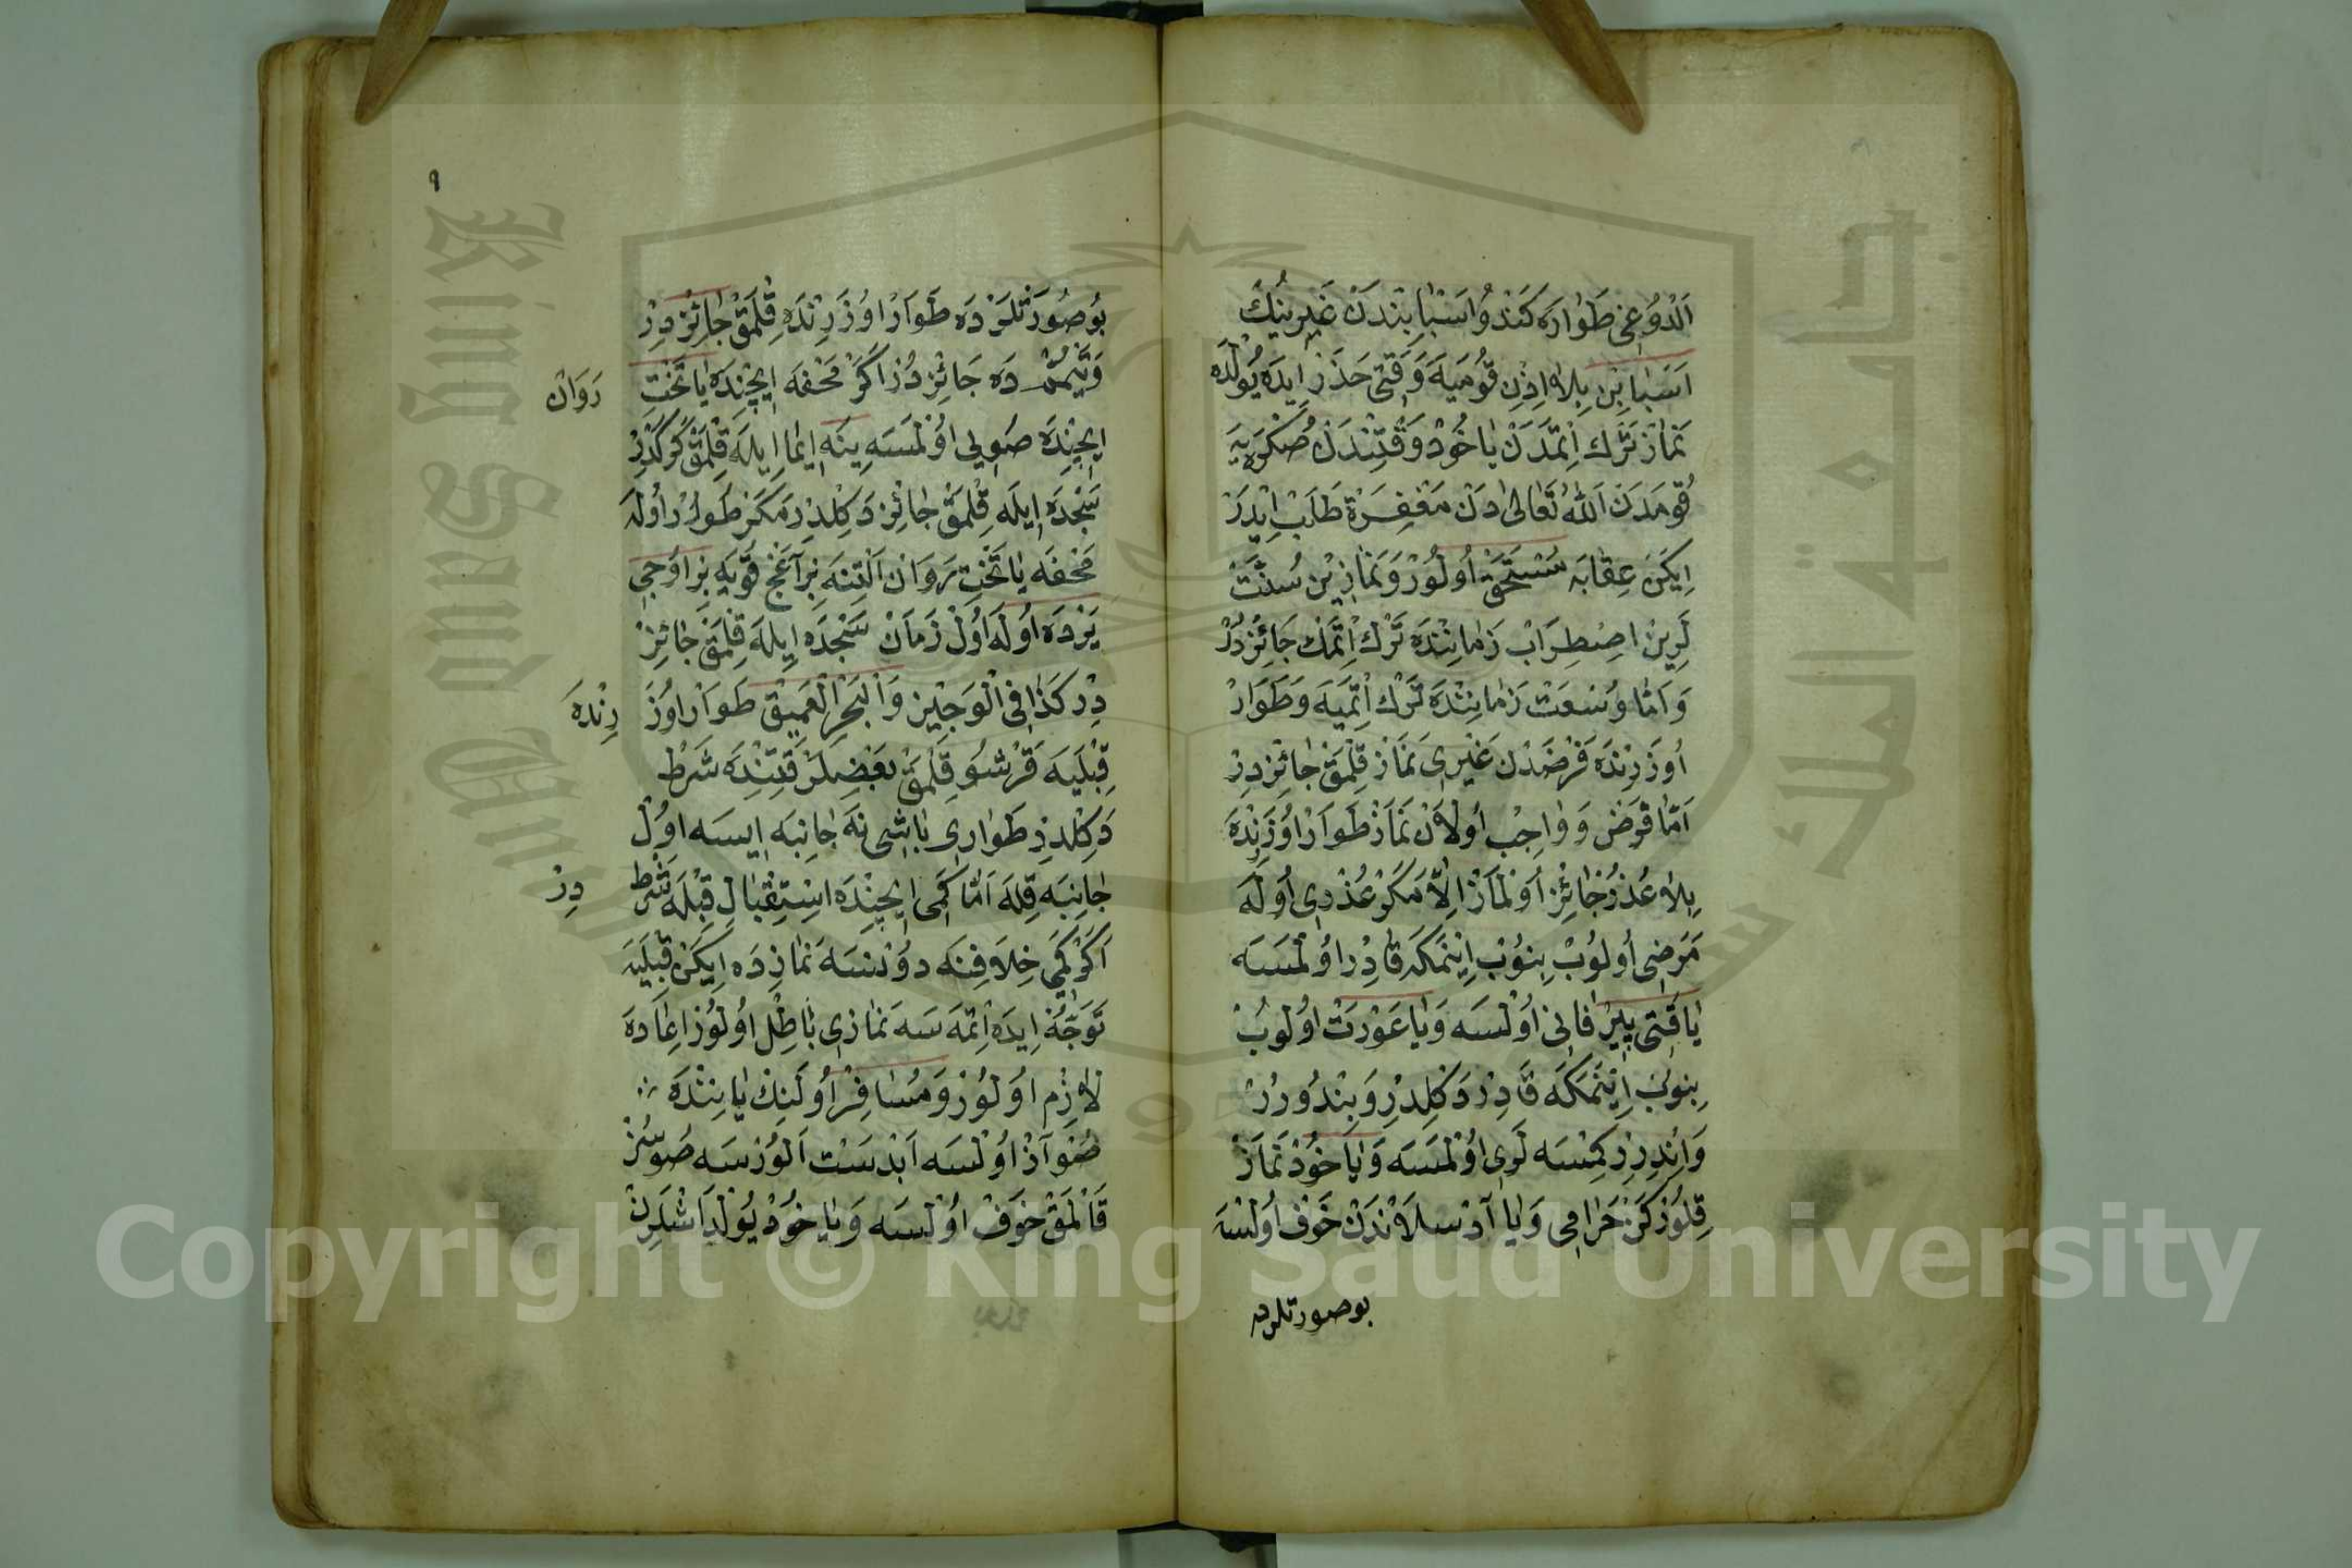 اَلْدُوغِى طَوٰارَه كَنْدُو اَسْبٰابِنْدَنْ غَيْرِينُكْ
اَسْبٰابِنِ بِلاٰ اِذْنِ قُومَيَه وَقْتِى حَذَرْ اِيدَه يُولْدَه
نَمٰازْ تَرْك اِتْمَدَنْ يٰا خُودْ وَقْتِنْدَنْ صُكْرَيَه
قُومَدَنْ اَللّٰهُ تَعٰالٰى دَنْ مَغْفِرَةْ طَلَبْ اِيدَرْ
اِيكَنْ عِقٰابَه مُسْتَحَقْ اُولُورْ وَنَمٰازِيْنْ سُنَّتْ
لَرِينْ اضِطِرَابْ زَمٰانِنْدَه تَرْك اِتْمَكْ جَائِزْدُرْ
وَ اَمّٰا وُسْعَتْ زَمٰانِنْدَه تَرْك اِتْمَيَه وَطَوَارْ
اُوزَرِنْدَه فَرْضَدَنْ غَيْرِى نَمٰازْ قِلْمَقْ جٰائِزْدِرْ
اَمّٰا فَرْض وَ وٰاجِبْ اُولاَنْ نَمَازْ طَوَارْ اُوزَرِنْدَه
بِلاٰ عُذْرْ جٰائِزْ اُولْمَازْ اِلاّٰ مَكَرْ عُذْرِى اُولَه
مَرَضِى اُولُوبْ بِنُوبْ اِينْمَكَه قٰادِرْ اُولْمَسَه
يٰا قَتِى پِيرْ فٰانِى اُولْسَه وَيٰا عَوْرَتْ اُولُوبْ
بِنُوبْ اِينْمَكَه قَادِرْ دَكِلْدِرْ وَبِنْدُورُرْ
وَاِنْدِرِرْ كِمْسَه لَرِى اُولْمَسَه وَيٰا خُودْ نَمَازْ
قِلُورْكَنْ حَرٰامِى وَيٰا آدْ سلاَنْدَنْ خَوْف اُولْسَه
بوصورتلرده
٩
بُوصُورَتْلَرْدَه طَوَارْ اُوزَرِنْدَه قِلْمَقْ جٰائِزْدِرْ
وَتَيَمُّمْ دَه جَائِزْدُرْ اَكَرْ مَحْفَه اِيچِنْدَه يٰا تَخْتِ
رَوَانْ
اِيچِنْدَه صَوِيى اُولْمَسَه يِنَه اِيمٰا اِيلَه قِلْمَقْ كَرَكْدِرْ
سَجْدَه اِيلَه قِلْمَقْ جٰائِزْ دَكِلْدِرْ مَكَرْ طَوَارْ اُولَه
مَحْفَه يٰا تَخْتِ رَوَانْ اَلْتِنَه بِرْ آغَجْ قُويَه بِرْ اُوجِى
يَرْدَه اُولَه اُولْ زَمَانْ سَجْدَه اِيلَه قِلْمَقْ جٰائِزْ
دِرْ كَذٰا فِى الْوَجِيْزِ وَ الْبَحْرِ الْعَمِيْقِ طَوَارْ اُوزَ
رِنْدَه
قِبْلَيَه قَرْشُو قِلْمَقْ بَعْضِلَرْ قَتِنْدَه شَرْط
دَكِلْدِرْ طَوَارِى بٰاشِى نَه جٰانِبَه اِيسَه اُولْ
جٰانِبَه قِلَه اَمّٰا كَمِى اِيچِنْدَه اِسْتِقْبٰالِ قِبْلَه شَرْط
دِرْ
اَكَرْ كَمِى خِلاَفِنَه دُونْسَه نَمٰازِدَه اِيكَنْ قِبْلَيَه
تَوَجُّهْ اِيدَه اِتْمَه سَه نَمٰازِى بٰاطِلْ اُولُورْ اِعَادَه
لاٰزِمْ اُولُورْ وَمُسٰافِرْ اُولَنِكْ يٰانِنْدَه
صُو آزْ اُولْسَه اَبْدَسْت اَلُورْسَه صُوسُزْ
قَالْمَقْ خَوَفْ اُولْسَه وَيٰا خُودْ يُولْدَاشْلَرِنْ